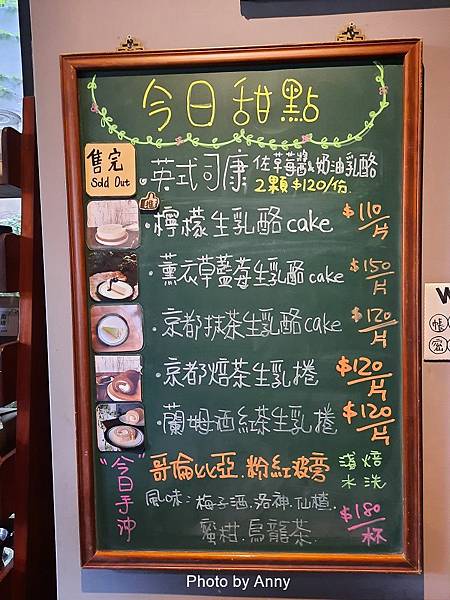 今日甜點
售完
Sold Out
·英式司康 佐草莓醬&奶油乳酪
2顆$120/份.
·檸檬生乳酪cake $110/片
·薰衣草藍莓生乳酪cake $150/片
·京都抹茶生乳酪cake $120/片
·京都焙茶生乳捲 $120/片
·蘭姆酒紅茶生乳捲 $120/片
"今日手沖" 哥倫比亞.粉紅波旁 淺焙
水洗
風味:梅子酒.洛神.仙楂.
蜜柑.烏龍茶. $180/杯
W
帳
密
Photo by Anny